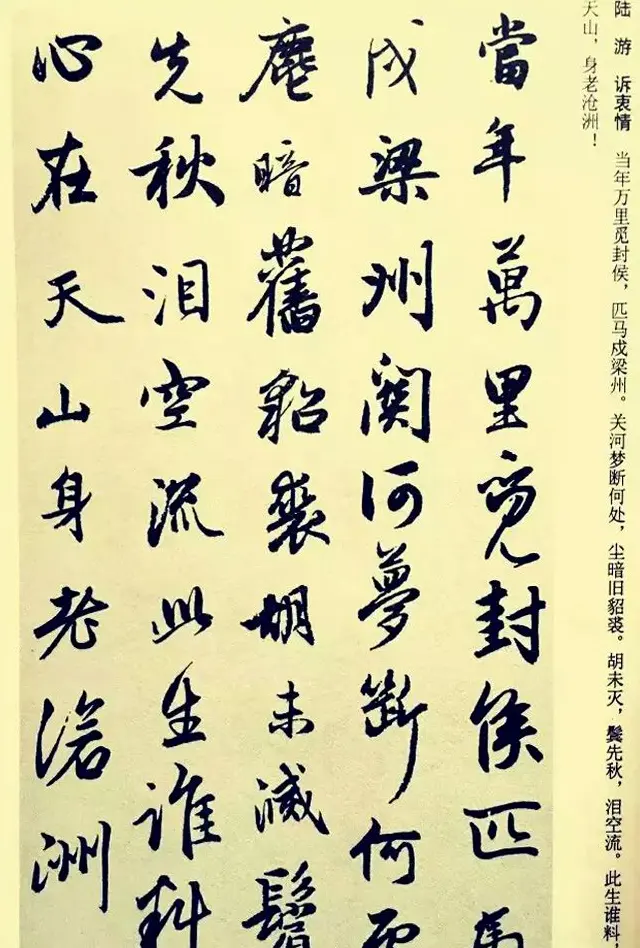 陆 游 诉衷情 当年万里觅封侯，匹马戍梁州。关河梦断何处，尘暗旧貂裘。胡未灭，鬓先秋，泪空流。此生谁料
天山，身老沧洲！
當年萬里覓封侯匹馬
戍梁州關河夢斷何處
塵暗舊貂裘胡未滅鬢
先秋泪空流此生誰料
心在天山身老滄洲